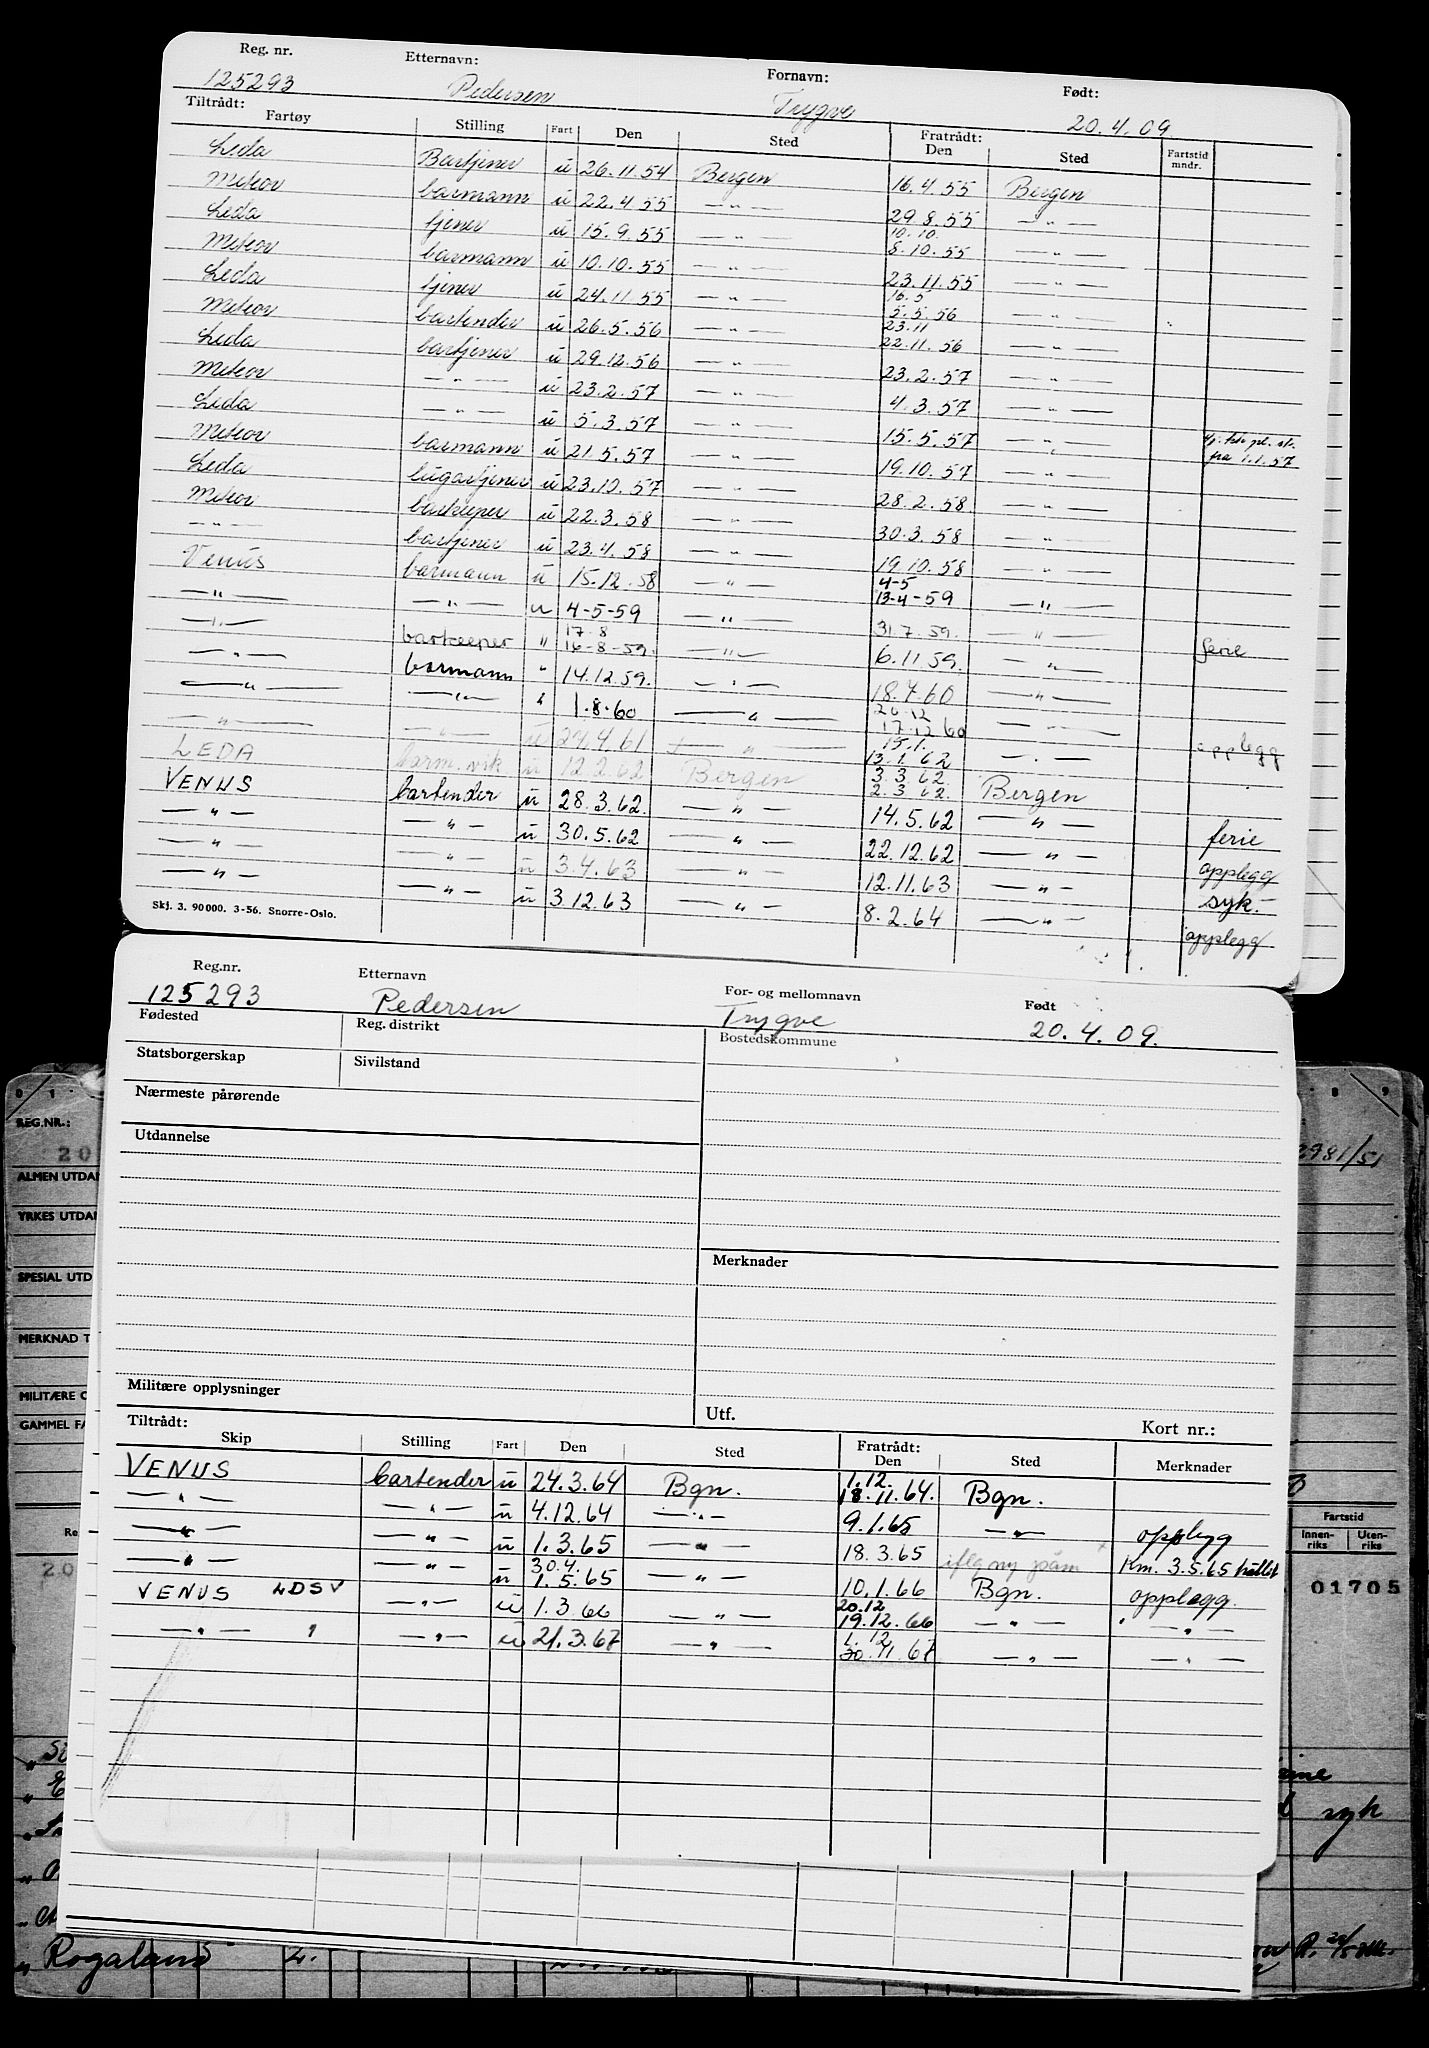 Reg. nr. Etternavn: Fornavn: Født:
125293 Pedersen Trygve 20.4.09.
Tiltrådt: Fratrådt:
Fartøy Stilling Fart Den Sted Den Sted Fartstid mndr.
Leda Bartjener u 26.11.54 Bergen 16.4.55 Bergen
Meteor barmann u 22.4.55 — " — 29.8.55 — " —
Leda tjener u 15.9.55 — " — 10.10. 8.10.55 — " —
Meteor barmann u 10.10.55 — " — 23.11.55 — " —
Leda tjener u 24.11.55 — " — 16.5 5.5.56 — " —
Meteor bartender u 26.5.56 — " — 23.11 22.11.56 — " —
Leda bartjener u 29.12.56 — " — 23.2.57 — " —
Meteor — " — u 23.2.57 — " — 4.3.57 — " —
Leda — " — u 5.3.57 — " — 15.5.57 — " — fra 1.1.57
Meteor barmann u 21.5.57 — " — 19.10.57 — " —
Leda lugartjener u 23.10.57 — " — 28.2.58 — " —
Meteor barkeeper u 22.3.58 — " — 30.3.58 — " —
— " — bartjener u 23.4.58 — " — 19.10.58 — " —
Venus barmann u 15.12.58 — " — 4-5 13-4-59 — " —
— " — — " — u 4-5-59 — " — 31.7.59. — " — ferie
— " — barkeeper " 17-8 16-8-59. — " — 6.11.59. — " —
— " — barmann " 14.12.59. — " — 18.7.60 — " —
— " — — " — " 1.8.60 — " — 20.12 17.12.60 — " — opplegg
— " — — " — u 27.4.61 — " — 15.1. 13.1.62 — " —
LEDA barm. vik u 12.2.62 Bergen 3.3.62 2.3.62. Bergen
VENUS bartender u 28.3.62. — " — 14.5.62 — " — ferie
— " — — " — u 30.5.62 — " — 22.12.62 — " — opplegg
— " — — " — u 3.4.63 — " — 12.11.63 — " — syk.
— " — — " — u 3.12.63 — " — 8.2.64 — " — opplegg
Skj. 3. 90000. 3-56. Snorre-Oslo.
Reg.nr. Etternavn For- og mellomnavn Født
125293 Pedersen Trygve 20.4.09.
Fødested Reg. distrikt Bostedskommune
Statsborgerskap Sivilstand
Nærmeste pårørende
Utdannelse
Merknader
Militære opplysninger Utf. Kort nr.:
Tiltrådt: Fratrådt:
Skip Stilling Fart Den Sted Den Sted Merknader
VENUS bartender u 24.3.64 Bgn. 1.12. 18.11.64. Bgn.
— " — — " — u 4.12.64 — " — 9.1.65 — " — opplegg
— " — — " — u 1.3.65 — " — 18.3.65 iflg ny påm Km. 3.5.65 trålbt
— " — — " — u 30.4. 1.5.65 — " — 10.1.66 Bgn. opplegg.
VENUS LDSV — " — u 1.3.66 — " — 20.12 19.12.66 — " — — " —
— " — " — " — u 21.3.67 — " — 1.12 30.11.67 — " — — " —
REG.NR.:
20
2981/51
ALMEN UTDAN
YRKES UTDAN
SPESIAL UTD
MERKNAD T
MILITÆRE O
GAMMEL FA
Fartstid
Innen- riks Uten- riks
20
01705
syk
Rogaland